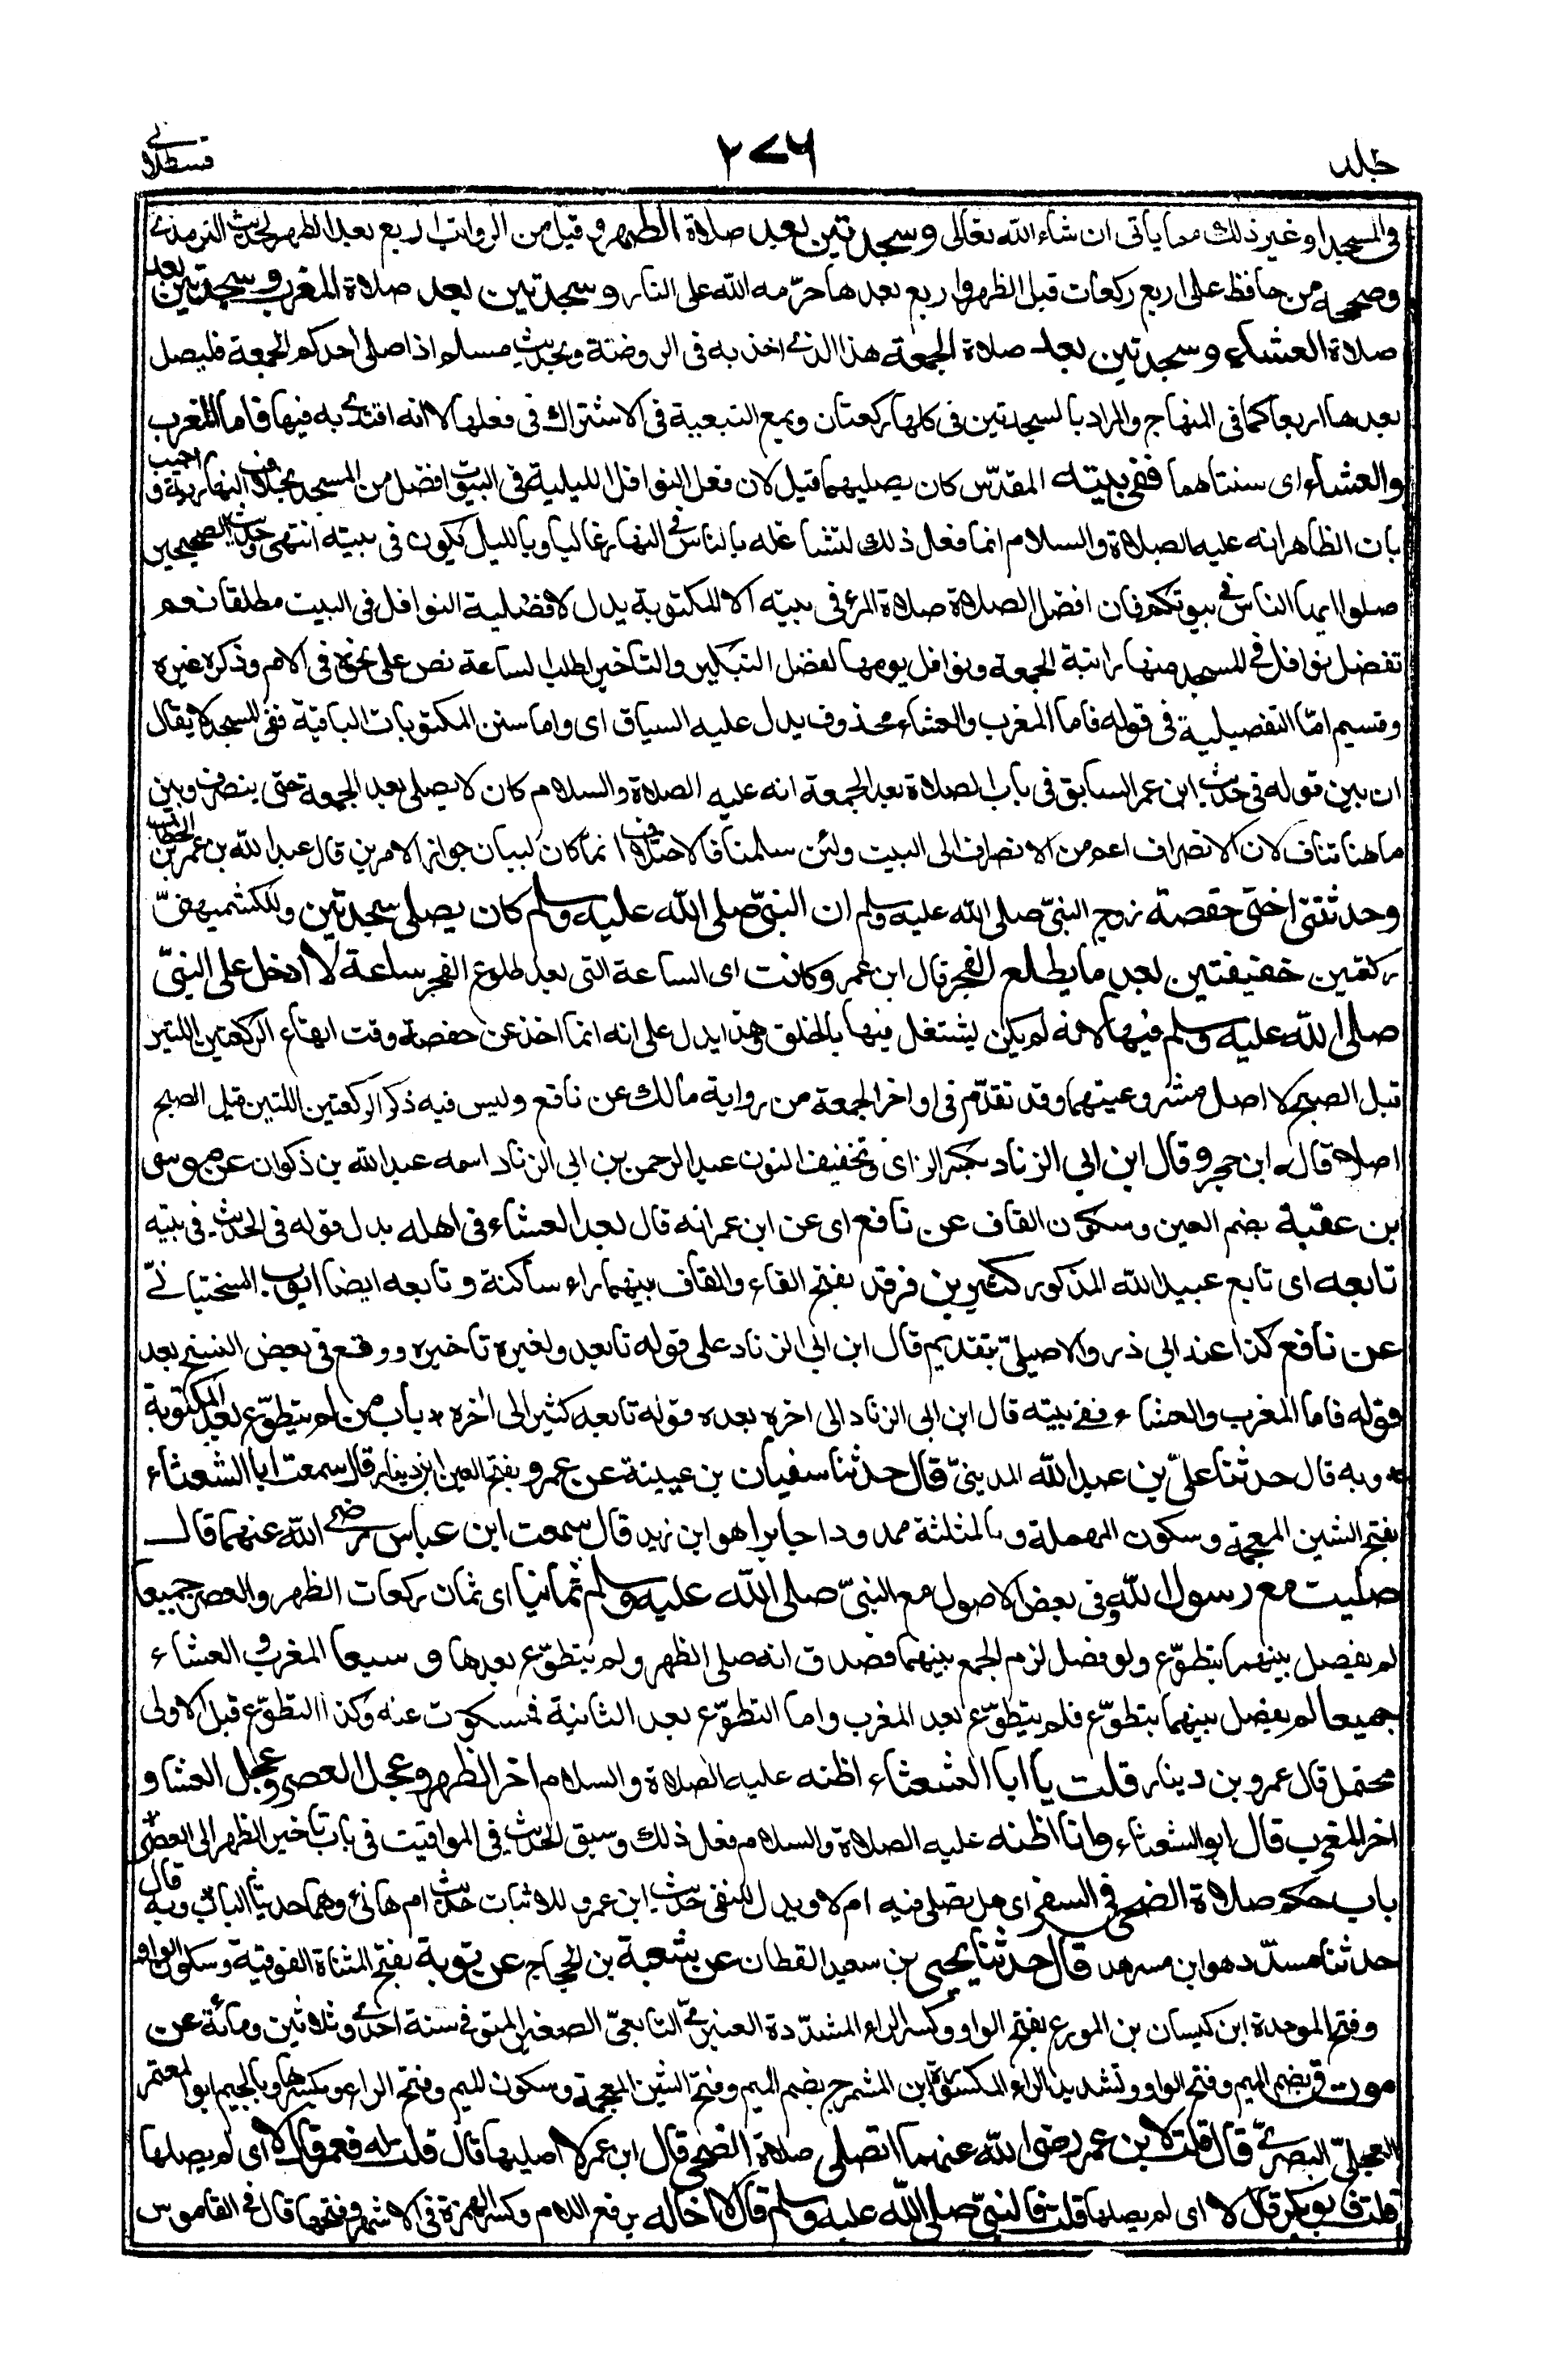 جلد
٢٧٦
قسطلانى
فى المسجد او غير ذلك مما يأتى ان شاء الله تعالى وسجدتين بعد صلاة الظهر وقيل من الرواتب اربع بعد الظهر لحديث الترمذى
وصححه من حافظ على اربع ركعات قبل الظهر واربع بعدها حرّمه الله على النار وسجدتين بعد صلاة المغرب وسجدتين بعد
صلاة العشاء وسجدتين بعد صلاة الجمعة هذا الذى اخذ به فى الروضة وبحديث مسلم اذا صلى احدكم الجمعة فليصل
بعدها اربعا كما فى المنهاج والمراد بالسجدتين فى كلها ركعتان وبمع التبعية فى الاشتراك فى فعلها لا انه اقتدى به فيها فاما المغرب
والعشاء اى سنتاهما ففى بيته المقدّس كان يصليهما قيل لان فعل النوافل الليلية فى البيت افضل من المسجد بخلاف النهارية واجيب
بان الظاهر انه عليه الصلاة والسلام انما فعل ذلك لتشاغله بالناس فى النهار غالبا وبالليل يكون فى بيته انتهى وحديث الصحيحين
صلوا ايها الناس فى بيوتكم فان افضل الصلاة صلاة المرء فى بيته الا المكتوبة يدل لافضلية النوافل فى البيت مطلقا نعم
تفضل نوافل فى المسجد منها راتبة الجمعة ونوافل يومها لفضل التبكير والتاخير لطلب الساعة نص على نحوه فى الام وذكره غيره
وقسيم امّا التفصيلية فى قوله فاما المغرب والعشاء محذوف يدل عليه السياق اى واما سنن المكتوبات الباقية ففى المسجد لا يقال
ان بين قوله فى حديث ابن عمر السابق فى باب الصلاة بعد الجمعة انه عليه الصلاة والسلام كان لا يصلى بعد الجمعة حتى ينصرف وبين
ما هنا تناف لان الانصراف اعم من الانصراف الى البيت ولئن سلمنا فالاختلاف انما كان لبيان جواز الامرين قال عبد الله بن عمر بن الخطاب
وحدثتنى اختى حفصة زوج النبىّ صلى الله عليه وسلم ان النبىّ صلى الله عليه وسلم كان يصلى سجدتين وللكشميهنىّ
ركعتين خفيفتين بعد ما يطلع الفجر قال ابن عمر وكانت اى الساعة التى بعد طلوع الفجر ساعة لا ادخل على النبىّ
صلى الله عليه وسلم فيها لانه لم يكن يشتغل فيها بالخلق وهذا يدل على انه انما اخذ عن حفصة وقت ايقاع الركعتين اللتين
قبل الصبح لا اصل مشروعيتهما وقد تقدّم فى اواخر الجمعة من رواية مالك عن نافع وليس فيه ذكر الركعتين اللتين قبل الصبح
اصلا قاله ابن حجر وقال ابن ابى الزناد بكسر الزاى وتخفيف النون عبد الرحمن بن ابى الزناد اسمه عبد الله بن ذكوان عن موسى
بن عقبة بضم العين وسكون القاف عن نافع اى عن ابن عمر انه قال بعد العشاء فى اهله بدل قوله فى الحديث فى بيته
تابعه اى تابع عبيد الله المذكور كثير بن فرقد بفتح الفاء والقاف بينهما راء ساكنة و تابعه ايضا ايوب السختيانىّ
عن نافع كذا عند ابى ذر والاصيلىّ بتقديم قال ابن ابى الزناد على قوله تابعه ولغيره تاخيره ووقع فى بعض النسخ بعد
قوله فاما المغرب والعشاء ففى بيته قال ابن ابى الزناد الى اخره بعده قوله تابعه كثير الى اخره * باب من لم يتطوّع بعد المكتوبة
* وبه قال حدثنا علىّ بن عبد الله المدينىّ قال حدثنا سفيان بن عيينة عن عمرو بفتح العين ابن دينار قال سمعت ابا الشعثاء
بفتح الشين المعجمة وسكون المهملة وبالمثلثة ممدودا جابرا هو ابن زيد قال سمعت ابن عباس رضى الله عنهما قال
صليت مع رسول الله وفى بعض الاصول مع النبىّ صلى الله عليه وسلم ثمانيا اى ثمان ركعات الظهر والعصر جميعا
لم يفصل بينهما بتطوّع ولو فصل لزم الجمع بينهما فصدق انه صلى الظهر ولم يتطوّع بعدها و سبعا المغرب والعشاء
جميعا لم يفصل بينهما بتطوّع فلم يتطوّع بعد المغرب واما التطوّع بعد الثانية فمسكوت عنه وكذا التطوّع قبل الاولى
محتمل قال عمرو بن دينار قلت يا ابا الشعثاء اظنه عليه الصلاة والسلام اخر الظهر وعجل العصر وعجل العشاء و
اخر المغرب قال ابو الشعثاء وانا اظنه عليه الصلاة والسلام فعل ذلك وسبق الحديث فى المواقيت فى باب تاخير الظهر الى العصر *
باب حكم صلاة الضحى فى السفر اى هل تصلى فيه ام لا ويدل للنفى حديث ابن عمر وللاثبات حديث ام هانئ وهما حديثا الباب وبه قال
حدثنا مسدّد هو ابن مسرهد قال حدثنا يحيى بن سعيد القطان عن شعبة بن الحجاج عن توبة بفتح المثناة الفوقية وسكون الواو
وفتح الموحدة ابن كيسان بن المورع بفتح الواو وكسر الراء المشدّدة العنبرىّ التابعىّ الصغير المتوفى سنة احدى وثلاثين ومائة عن
مورق بضم الميم وفتح الواو وتشديد الراء المكسورة ابن المشمرج بضم الميم وفتح الشين المعجمة وسكون الميم وفتح الراء وبكسرها وبالجيم ابو المعتمر
العجلىّ البصرىّ قال قلت لابن عمر رضى الله عنهما اتصلى صلاة الضحى قال ابن عمر لا اصليها قال قلت له فعمر قال لا اى لم يصلها
قلت فابو بكر قال لا اى لم يصلها قلت فالنبىّ صلى الله عليه وسلم قال لا اخاله برفع اللام وكسر الهمزة فى الاشهر وفتحها قال فى القاموس